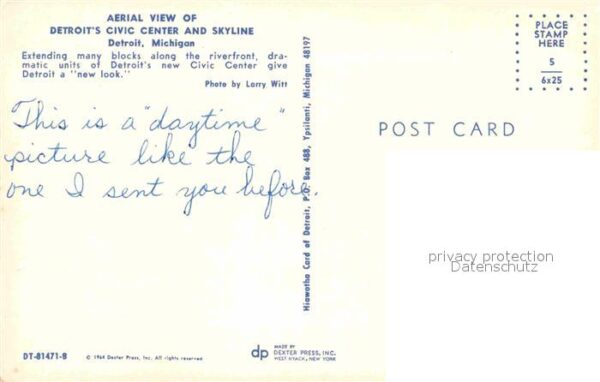 AERIAL VIEW OF
DETROIT'S CIVIC CENTER AND SKYLINE
Detroit, Michigan
Extending many blocks along the riverfront, dra-
matic units of Detroit's new Civic Center give
Detroit a "new look."
Photo by Larry Witt
This is a "daytime"
picture like the
one I sent you before.
Hiawatha Card of Detroit, P.O. Box 488, Ypsilanti, Michigan 48197
PLACE
STAMP
HERE
5
6x25
POST CARD
privacy protection
Datenschutz
DT-81471-B
© 1964 Dexter Press, Inc. All rights reserved
dp
MADE BY
DEXTER PRESS, INC.
WEST NYACK, NEW YORK